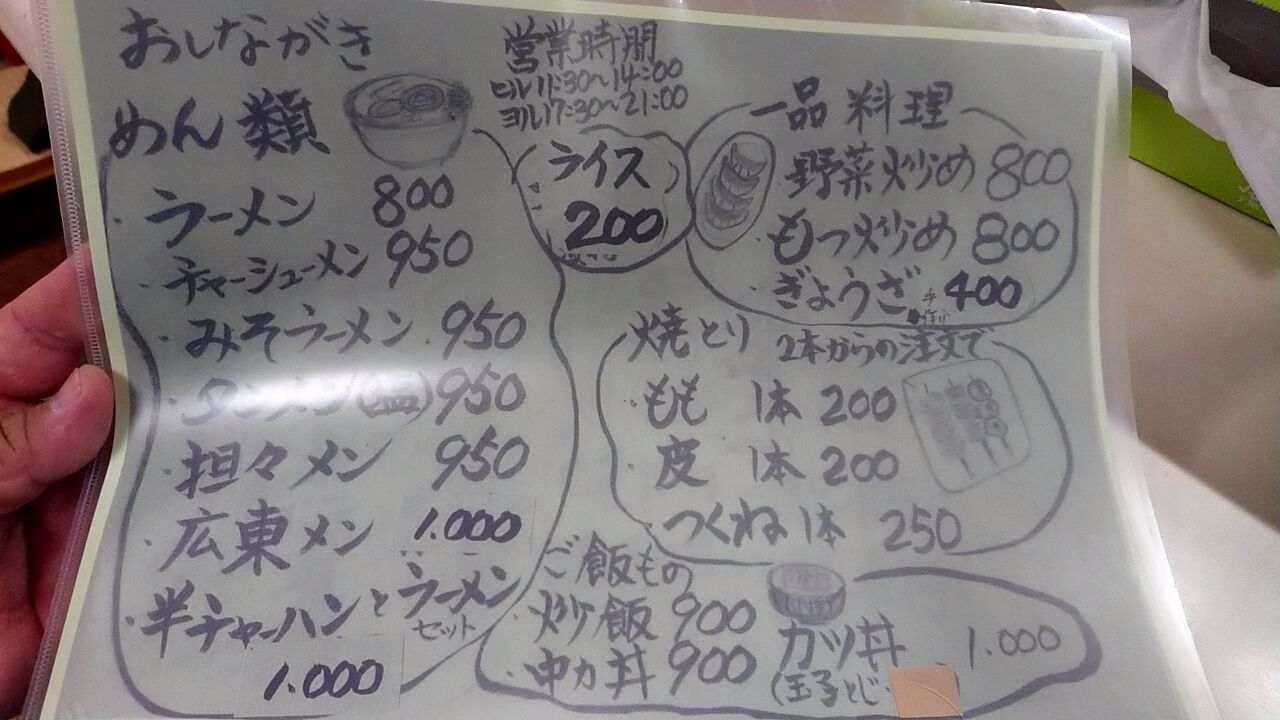 おしながき
めん類
・ラーメン 800
・チャーシューメン 950
・みそラーメン 950
・タンメン(塩) 950
・担々メン 950
・広東メン 1.000
・半チャーハンとラーメン
セット
1.000
営業時間
ヒル11:30〜14:00
ヨル17:30〜21:00
ライス
200
一品料理
・野菜炒め 800
・もつ炒め 800
・ぎょうざ 手作り 400
焼とり 2本からの注文で
・もも 1本 200
・皮 1本 200
・つくね 1本 250
ご飯もの
・炒飯 900
・中カ丼 900
カツ丼 1.000
(玉子とじ